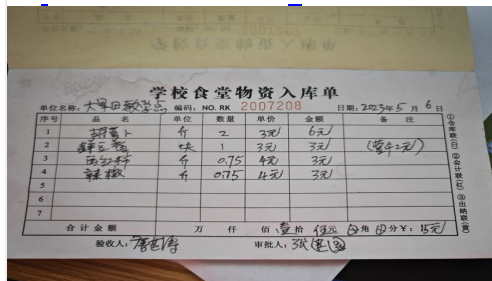 学校食堂物资入库单
单位名称：大军田教学点 编码：NO. RK 2007208 日期：2023年5月6日
序号 品名 单位 数量 单价 金额 备注
1 胡萝卜 斤 2 3元/ 6元/
2 块 1 3元/ 3元/
3 西红柿 斤 0.75 4元/ 3元/
4 辣椒 斤 0.75 4元/ 3元/
5
6
7
合计金额 万 仟 佰 壹拾 伍元 角 分￥：15元/
验收人： 审批人：
①仓库联(白) ②会计联(红) ③出纳联(黄)